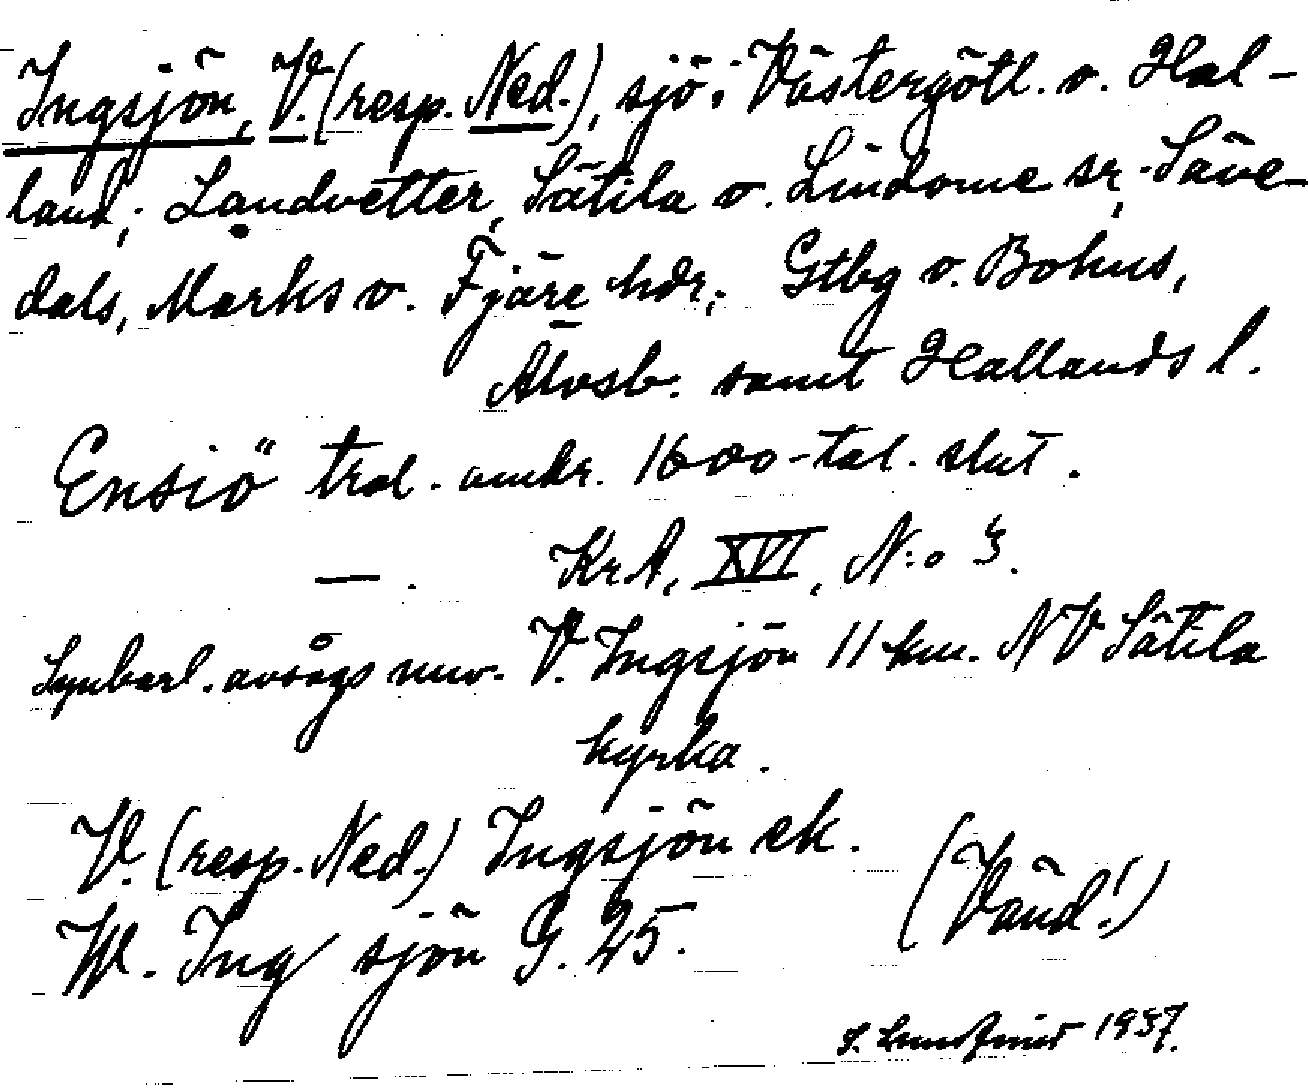 Ingsjön, V. (resp. Ned.), sjö i Västergötl. o. Hal-
land; Landvetter, Sätila o. Lindome sr, Säve-
dals, Marks o. Fjäre hdr; Gtbg o. Bohus,
Älvsb. samt Hallands l.
Ensiö tral. andr. 1600-tal. slut.
—. KrA, XVI, N:o 3.
Synbarl. avsågs nuv. V. Ingsjön 11 km. NV Sätila
kyrka.
V. (resp. Ned.) Ingsjön ek.
W. Ing sjön G. 25.
(Vänd!)
1937.